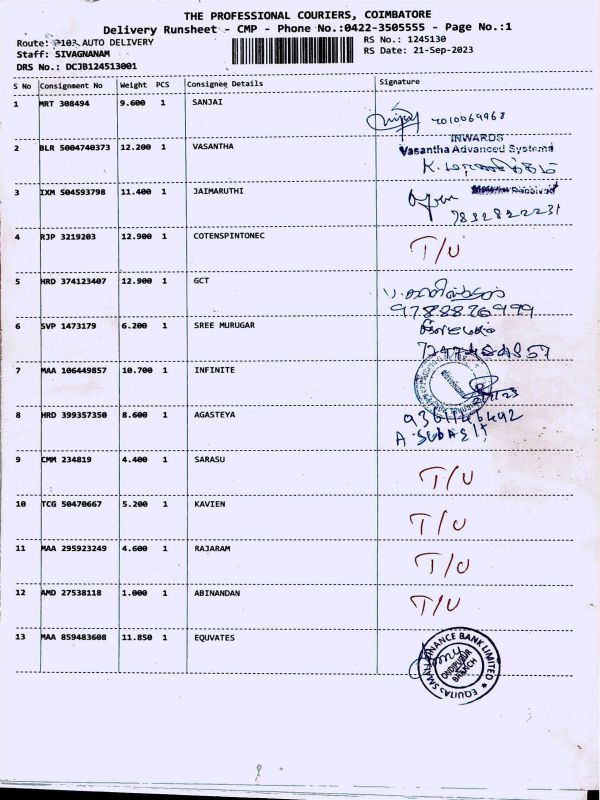 THE PROFESSIONAL COURIERS, COIMBATORE
Delivery Runsheet - CMP - Phone No.:0422-3505555 - Page No.:1
Route: 7103 AUTO DELIVERY
RS No.: 1245130
Staff: SIVAGNANAM
RS Date: 21-Sep-2023
DRS No.: DCJB124513001
S No Consignment No Weight PCS Consignee Details Signature
1 MRT 308494 9.600 1 SANJAI
7010069968
2 BLR 5004740373 12.200 1 VASANTHA
INWARDS
Vasantha Advanced Systems
3 IXM 504593798 11.400 1 JAIMARUTHI
Received
7832822231
4 RJP 3219203 12.900 1 COTENSPINTONEC T/U
5 HRD 374123407 12.900 1 GCT
9788876999
6 SVP 1473179 6.200 1 SREE MURUGAR
7 MAA 106449857 10.700 1 INFINITE
8 HRD 399357350 8.600 1 AGASTEYA
9361146492
9 CMM 234819 4.400 1 SARASU T/U
10 TCG 50470667 5.200 1 KAVIEN T/U
11 MAA 295923249 4.600 1 RAJARAM T/U
12 AMD 27538118 1.000 1 ABINANDAN T/U
13 MAA 859483608 11.850 1 EQUVATES
EQUITAS SMALL FINANCE BANK LIMITED
BRANCH